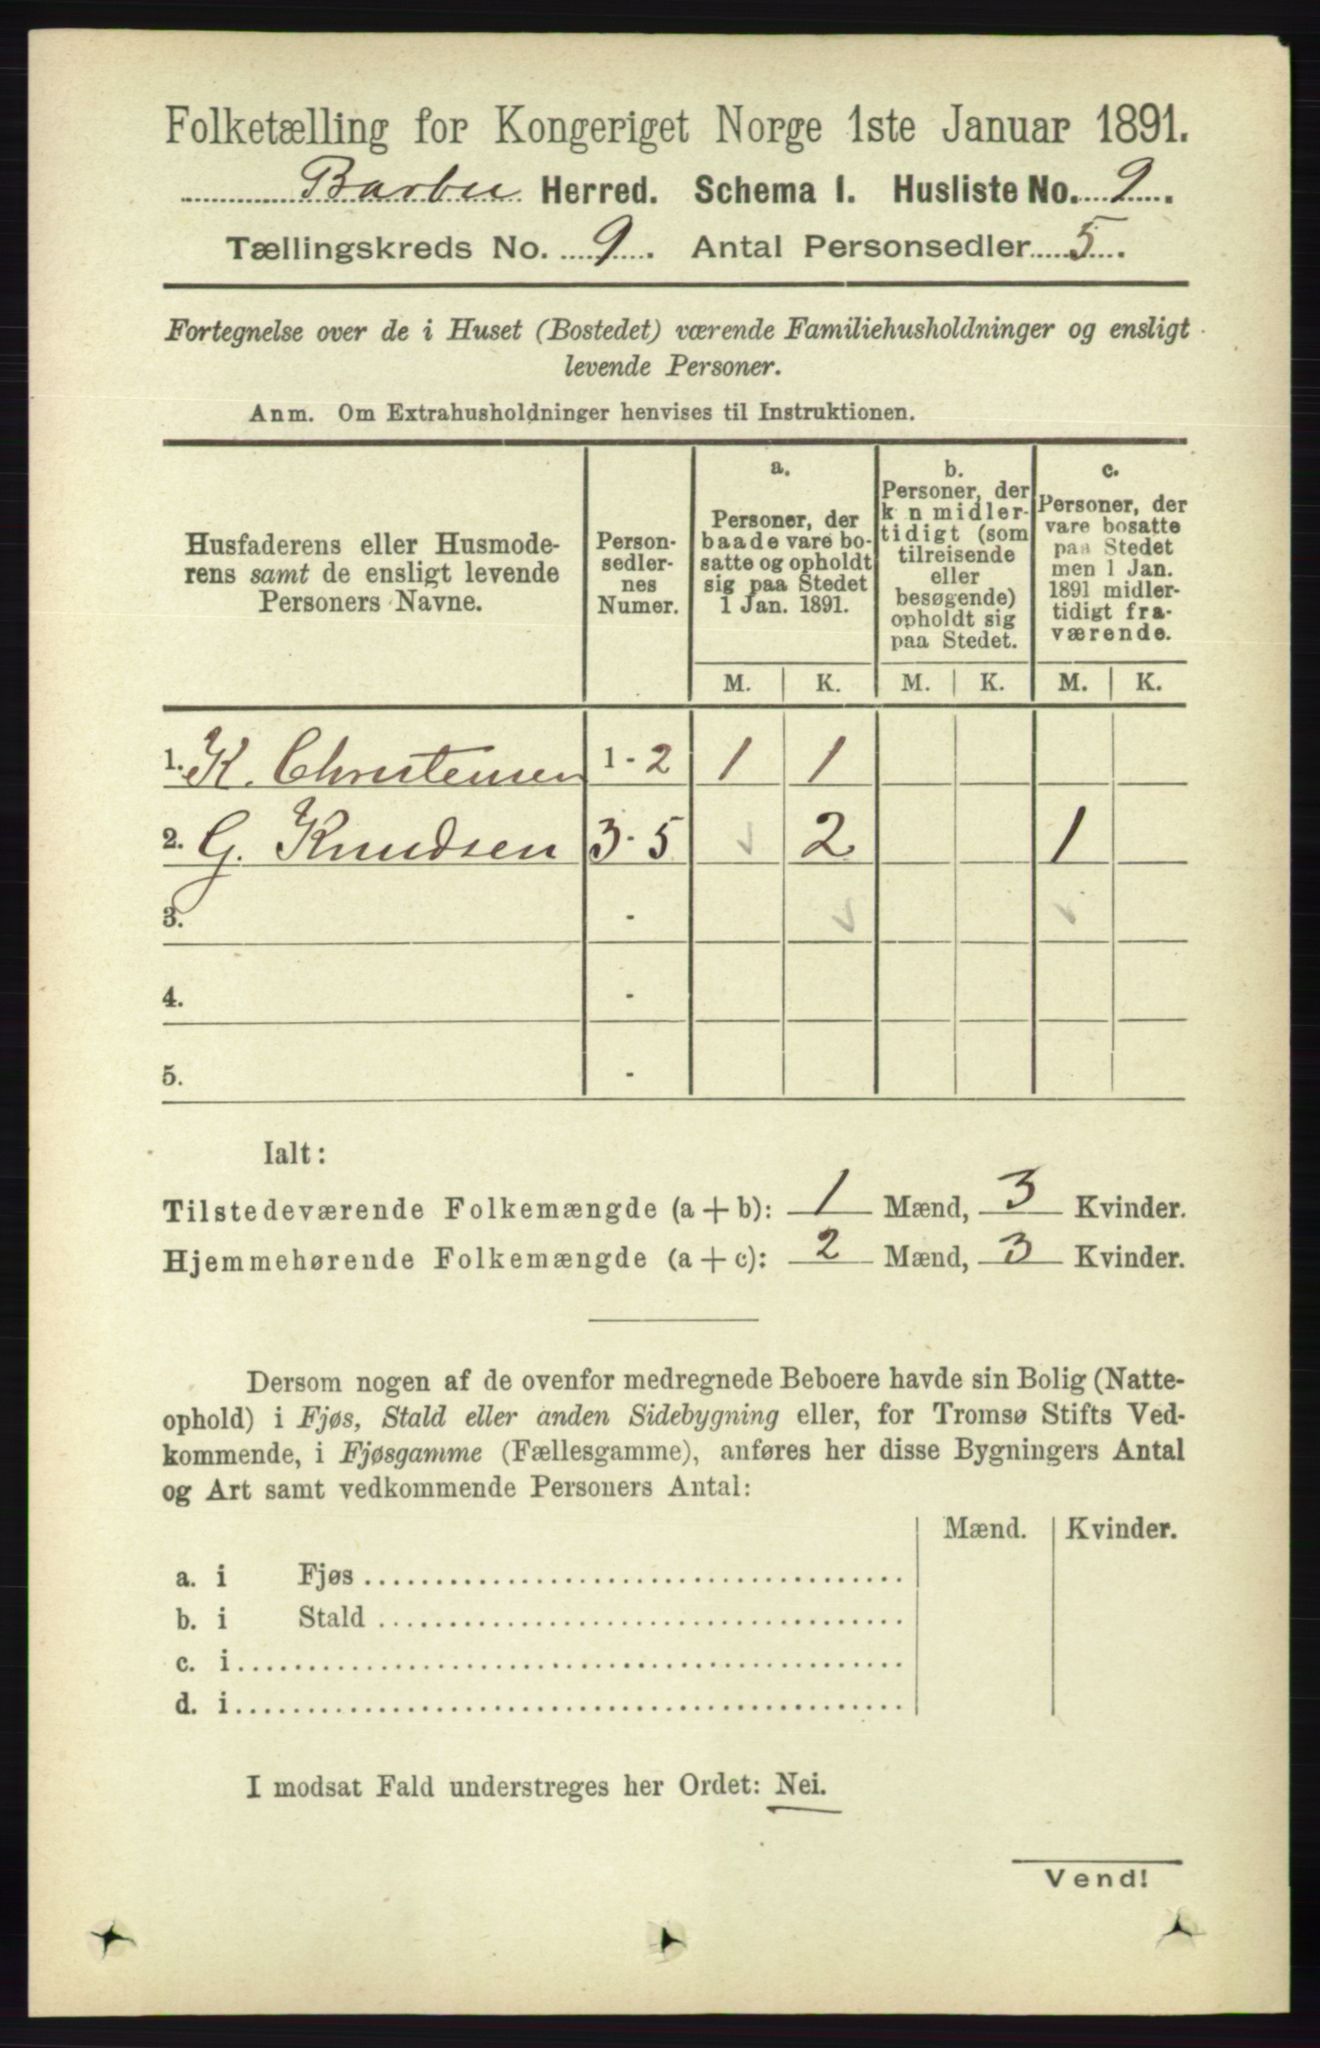 Folketælling for Kongeriget Norge 1ste Januar 1891.
Barbu Herred. Schema 1. Husliste No. 9.
Tællingskreds No. 9. Antal Personsedler 5.
Fortegnelse over de i Huset (Bostedet) værende Familiehusholdninger og ensligt
levende Personer.
Anm. Om Extrahusholdninger henvises til Instruktionen.
Husfaderens eller Husmode-
rens samt de ensligt levende
Personers Navne.
Person-
sedler-
nes
Numer.
a.
Personer, der
baade vare bo-
satte og opholdt
sig paa Stedet
1 Jan. 1891.
b.
Personer, der
k n midler-
tidigt (som
tilreisende
eller
besøgende)
opholdt sig
paa Stedet.
c.
Personer, der
vare bosatte
paa Stedet
men 1 Jan.
1891 midler-
tidigt fra-
værende.
M. K. M. K. M. K.
1. K. Christensen 1-2 1 1
2. G. Knudsen 3-5 2 1
3. -
4. -
5. -
Ialt:
Tilstedeværende Folkemængde (a + b): 1 Mænd, 3 Kvinder.
Hjemmehørende Folkemængde (a + c): 2 Mænd, 3 Kvinder.
Dersom nogen af de ovenfor medregnede Beboere havde sin Bolig (Natte-
ophold) i Fjøs, Stald eller anden Sidebygning eller, for Tromsø Stifts Ved-
kommende, i Fjøsgamme (Fællesgamme), anføres her disse Bygningers Antal
og Art samt vedkommende Personers Antal:
Mænd. Kvinder.
a. i Fjøs
b. i Stald
c. i
d. i
I modsat Fald understreges her Ordet: Nei.
Vend!